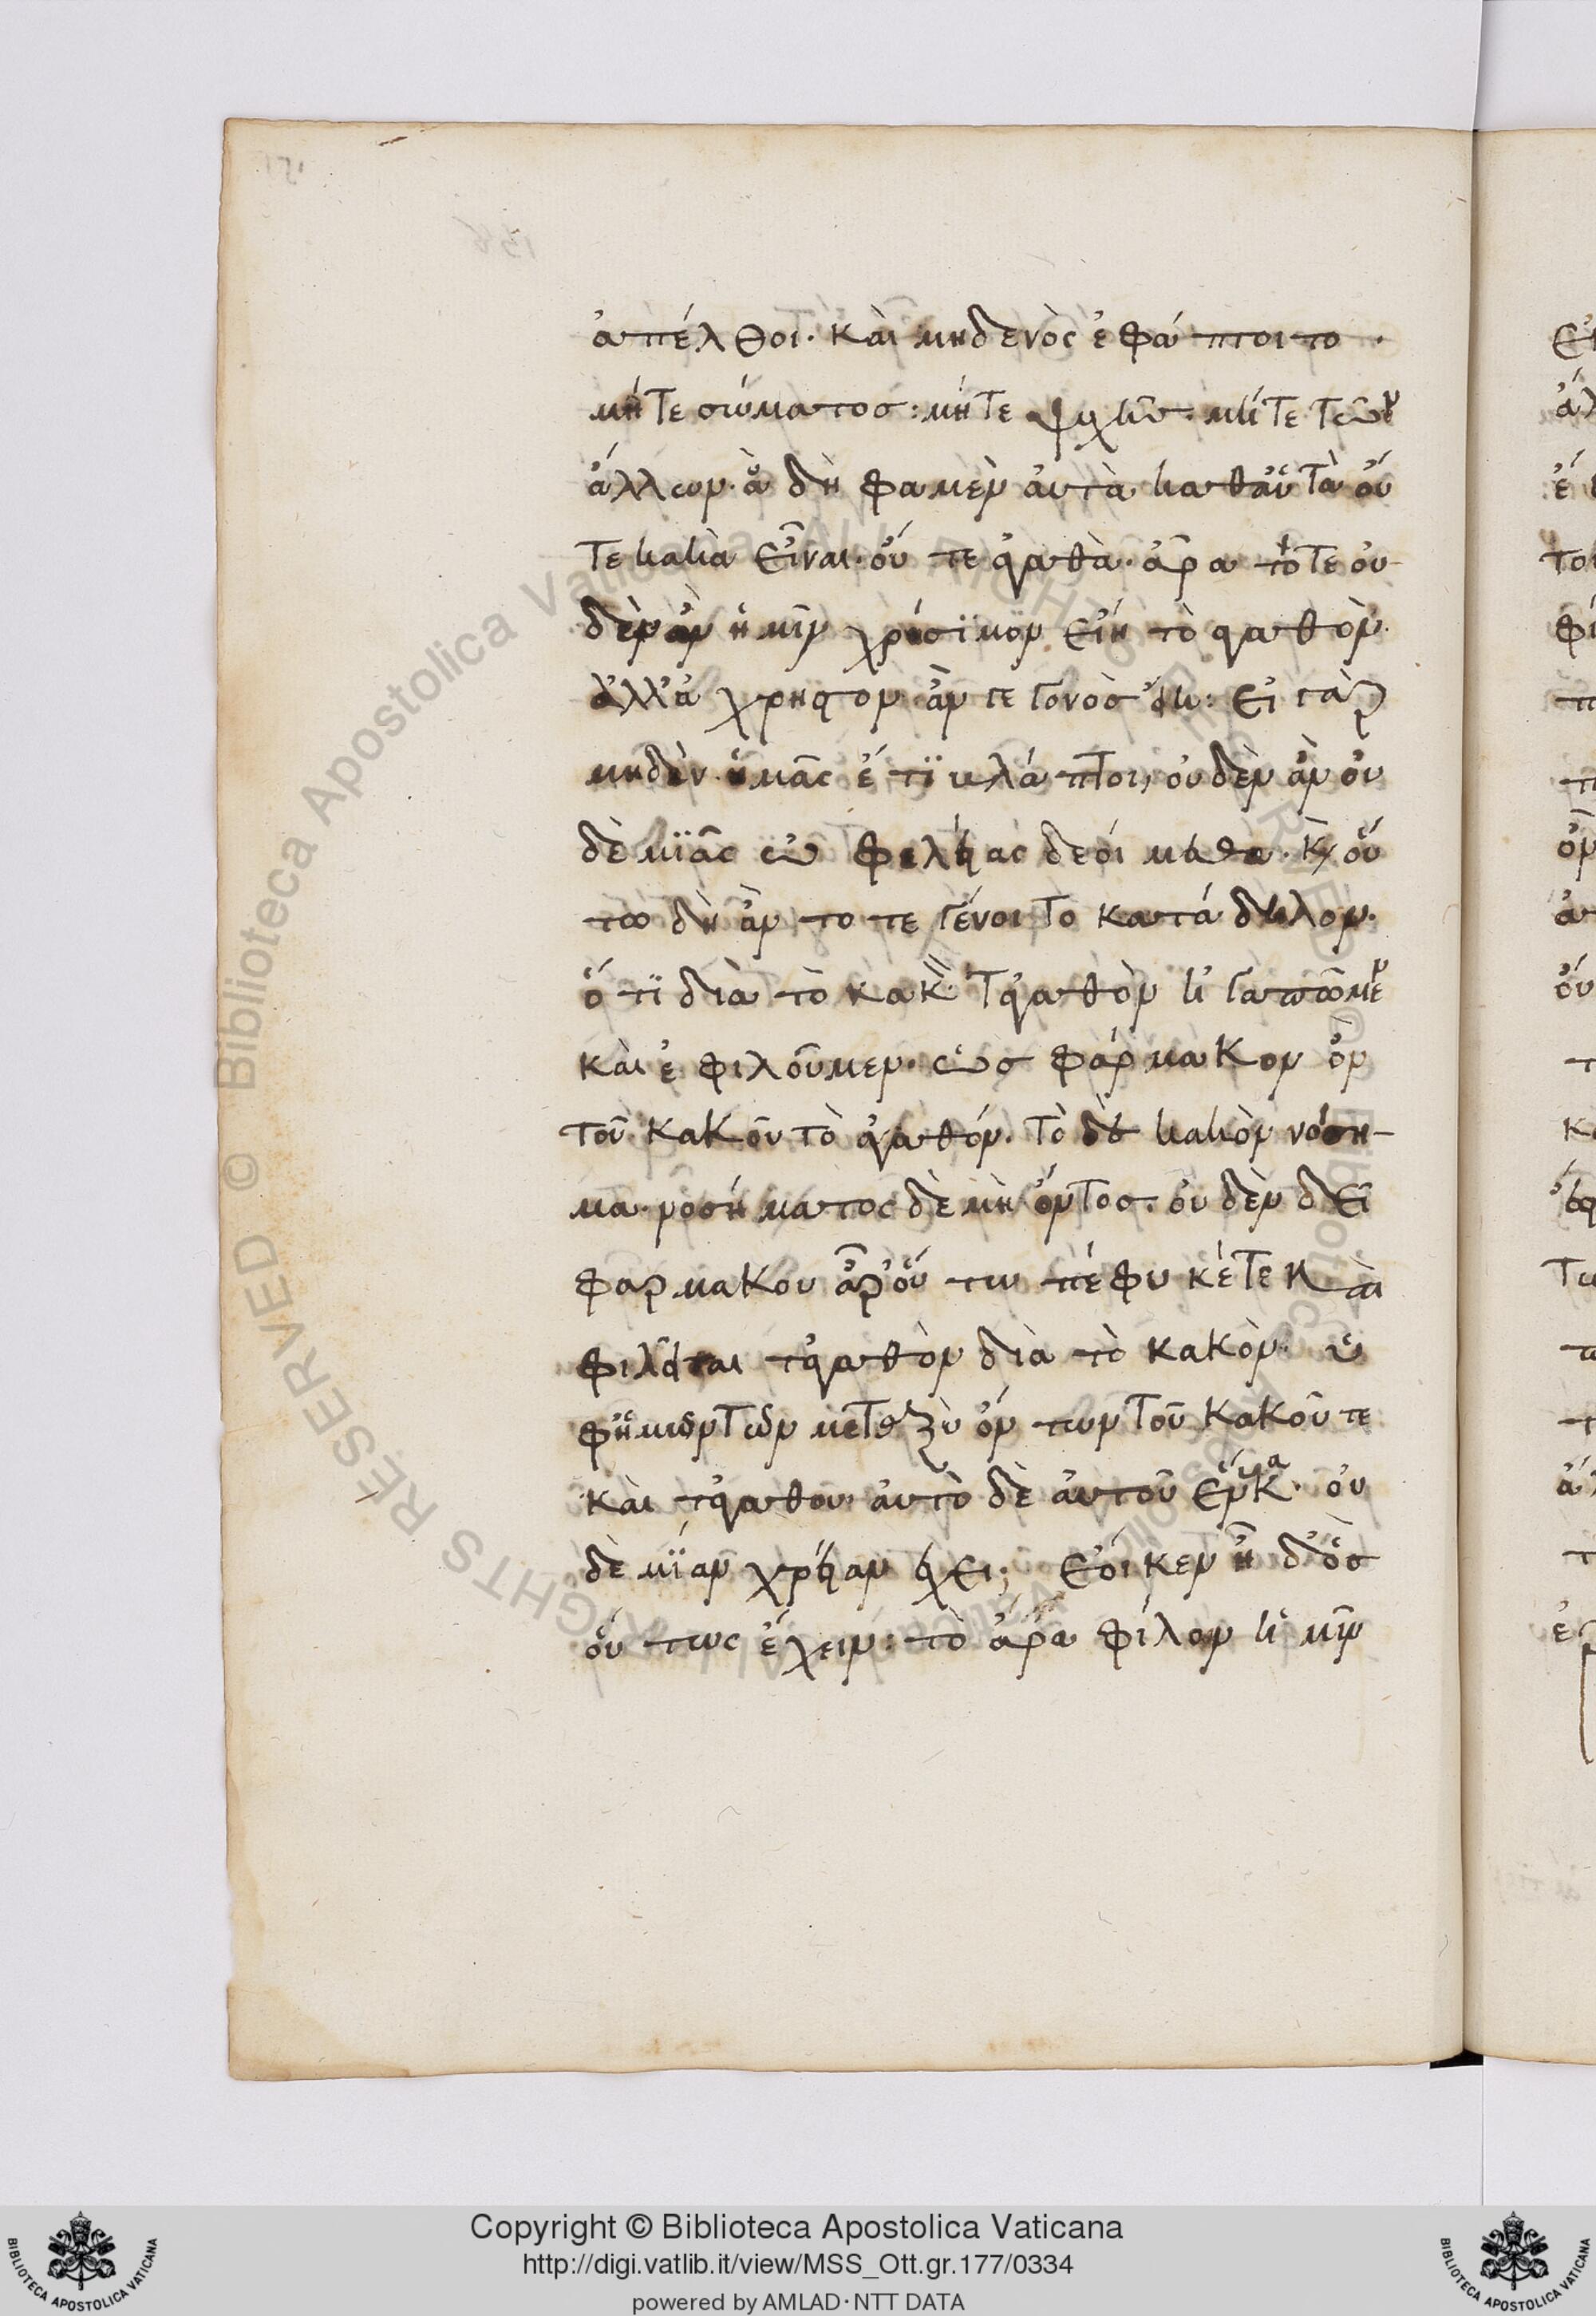 ἀπέλθοι· καὶ μηδενὸς ἐφάπτοιτο·
μήτε σώματος: μήτε ψυχῆς· μήτε τῶν
ἄλλων· ἃ δὴ φαμὲν αὐτὰ καθαὑτὰ οὔ
τε κακὰ εἶναι· οὔτε ἀγαθὰ· ἆρα τότε οὐ-
δὲν ἂν ἡμῖν χρήσϊμον εἴη τὸ ἀγαθὸν·
ἀλλ' ἄχρηστον ἂν γεγονὸς εἴη: εἰ γὰρ
μηδὲν ἡμᾶς ἔτϊ βλάπτοι, οὐδὲν ἂν οὐ
δὲ μϊᾶς ὠφελείας δεοίμεθα· κ οὕ
τω δὴ ἂν τότε γένοιτο κατάδηλον·
ὅτϊ διὰ τὸ κακ τἀγαθὸν ἠγαπῶμεν
καὶ ἐφιλοῦμεν· ὡς φάρμακον ὂν
τοῦ κακοῦ τὸ ἀγαθόν· τὸ δὲ κακὸν νόση-
μα· νοσήματος δὲ μὴ ὄντος· οὐδὲν δεῖ
φαρμάκου ἆρ' οὕτω πέφυκέ τε καὶ
φιλεῖται τἀγαθὸν διὰ τὸ κακὸν· ὑ
φ' ἡμῶν τῶν μεταξὺ ὄντων τοῦ κακοῦ τε
καὶ τἀγαθοῦ· αὐτὸ δὲ αὑτοῦ ἕνεκα· οὐ
δεμϊαν χρείαν ἔχει; ἔοικεν ἦ δ' ὃς
οὕτως ἔχειν: τὸ ἄρα φίλον ἡμῖν
Copyright © Biblioteca Apostolica Vaticana
http://digi.vatlib.it/view/MSS_Ott.gr.177/0334
powered by AMLAD·NTT DATA